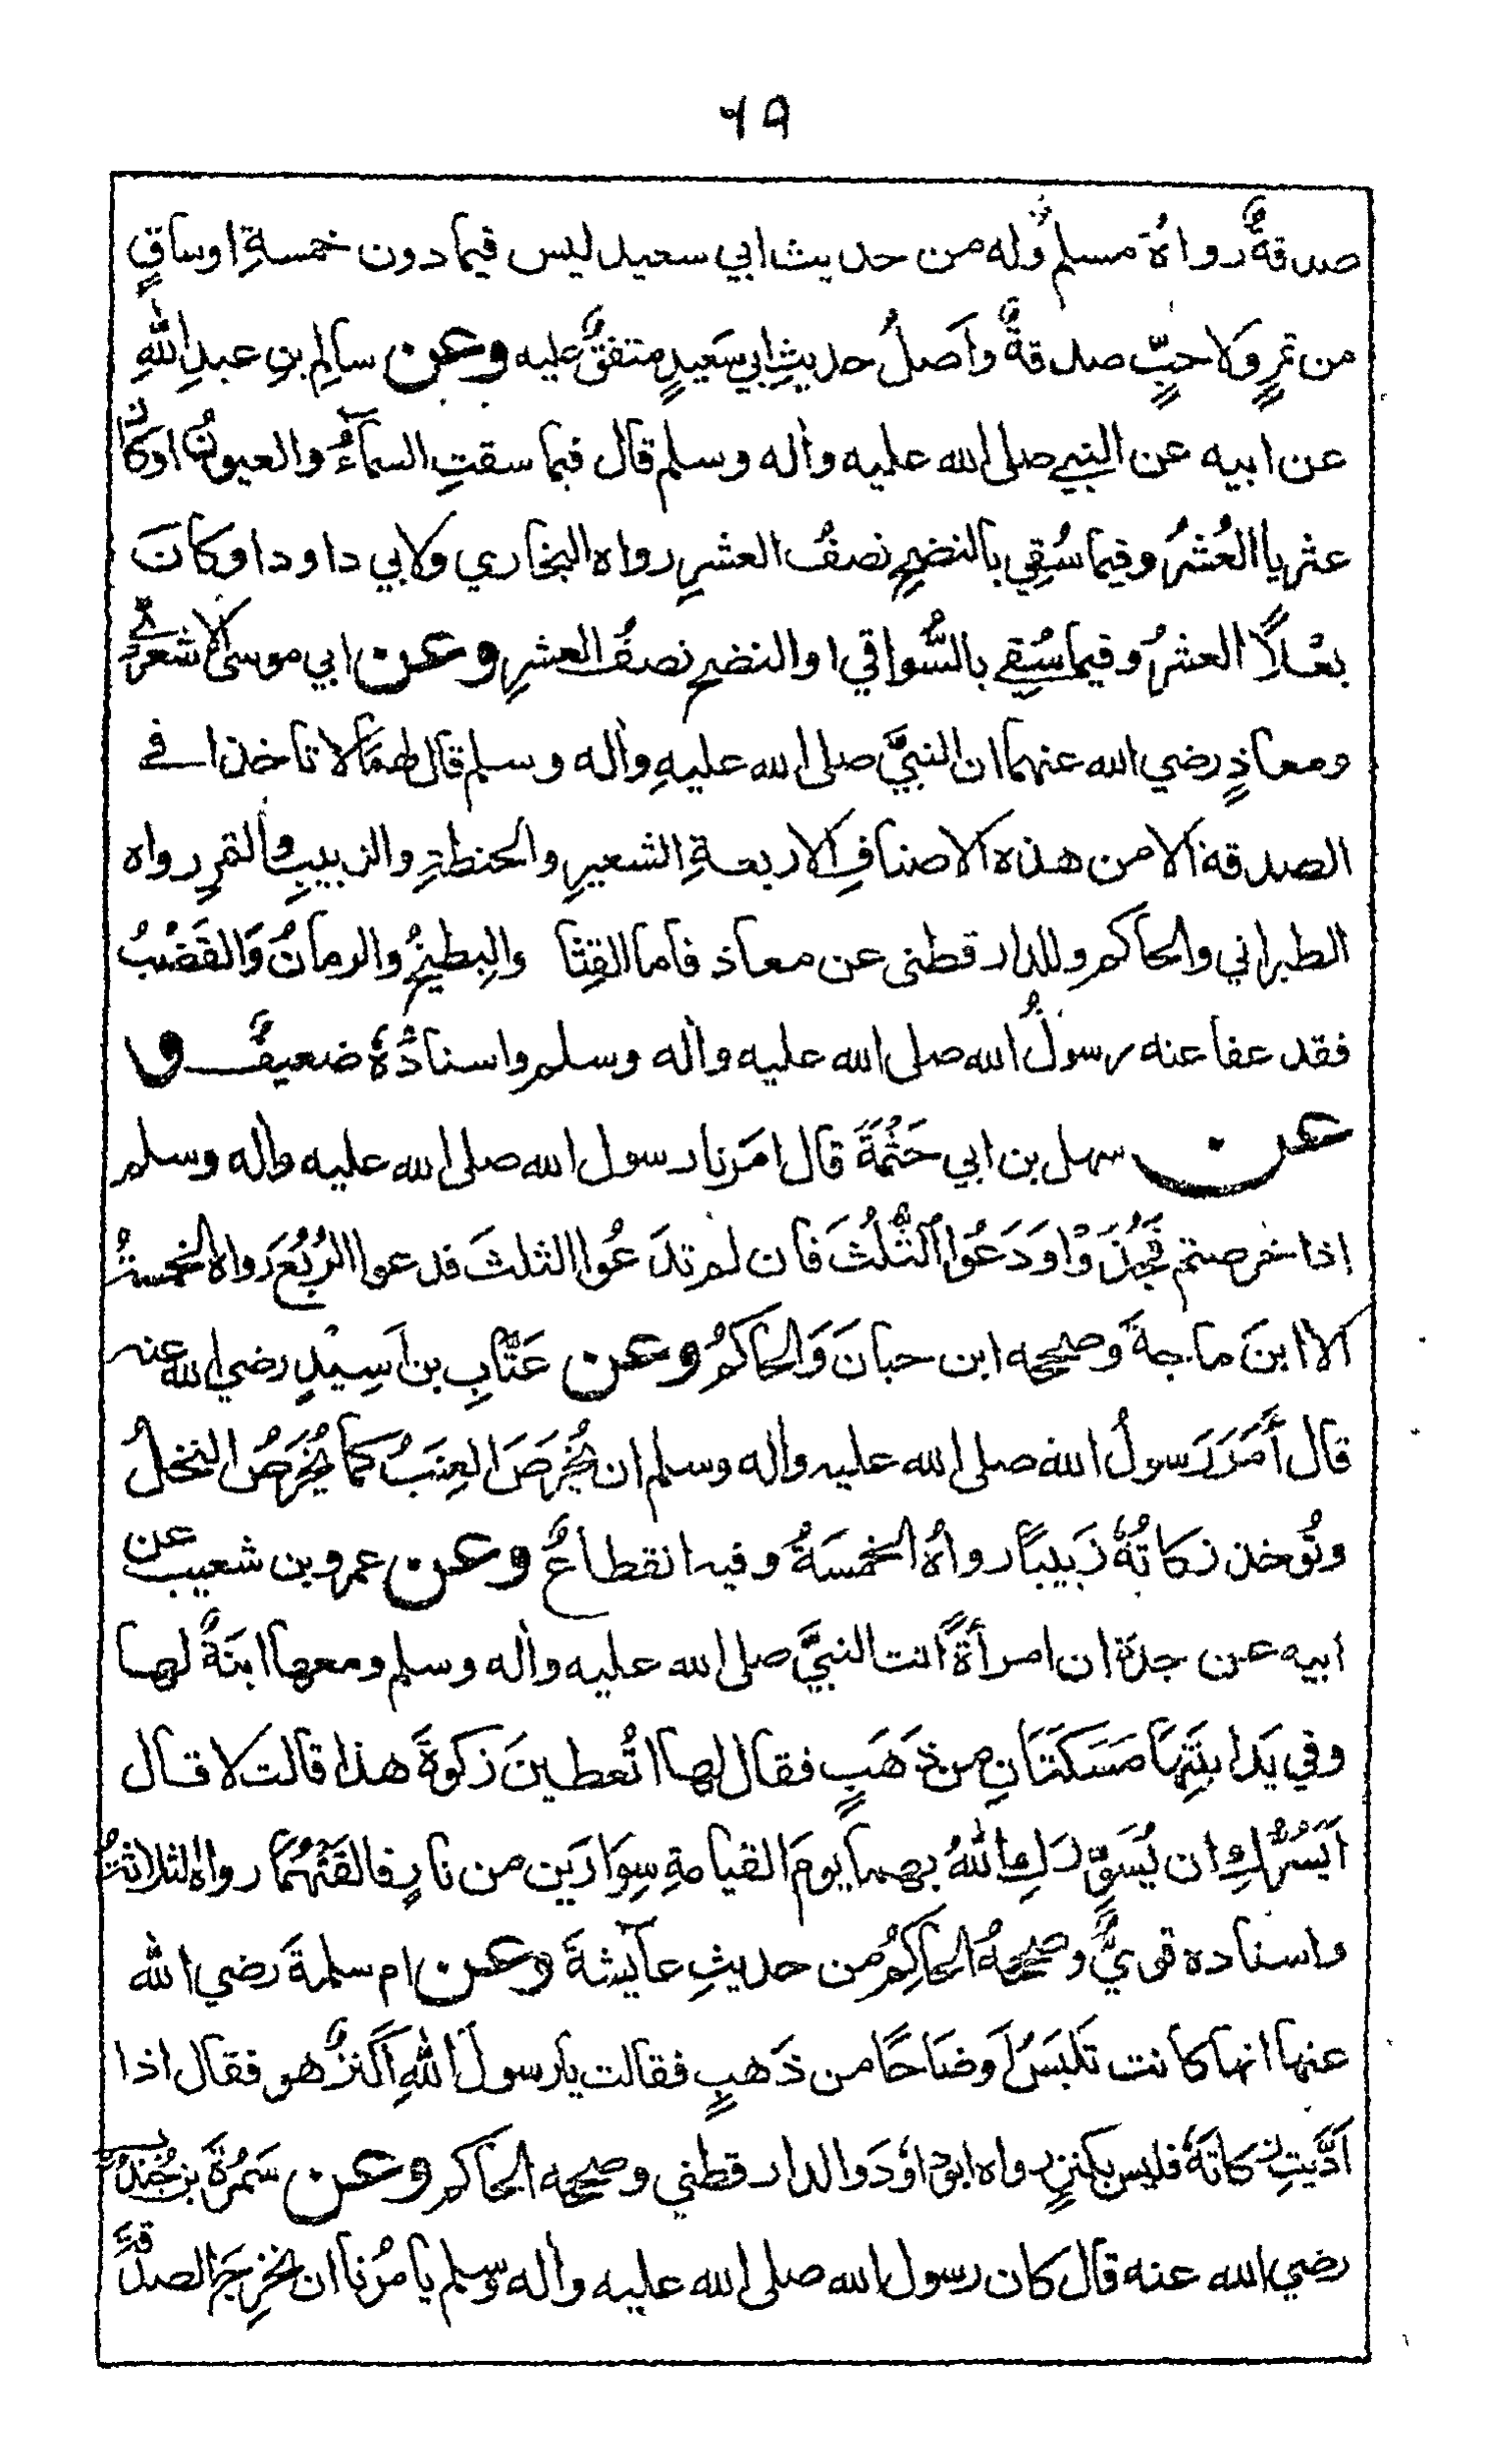 ٦٩
صدقةٌ رواهُ مسلم وله من حديث ابي سعيد ليس فيما دون خمسةِ اوساقٍ
من تمرٍ ولا حبٍّ صدقةٌ واَصلُ حديثِ ابي سَعيدٍ متفقٌ عليه وعن سالِم بنِ عبدِ اللهِ
عن ابيه عن النبي صلى الله عليه واٰله وسلم قال فيما سقتِ السمآءُ والعيونُ اوكان
عثريا العُشرُ وفيما سُقِي بالنضحِ نصفُ العشرِ رواه البخاري ولابي داود اوكانَ
بعْلاً العشرُ وفيما سُقِي بالسَّواقي او النضح نصفُ العشرِ وعن ابي موسى الاشعري
ومعاذٍ رضي الله عنهما ان النبيَّ صلى الله عليهِ واٰله وسلم قال لهما لا تاخذا في
الصدقة الا من هذه الاصنافِ الاربعةِ الشعيرِ والحنطةِ والزبيبِ والتمرِ رواه
الطبراني والحاكم وللدارقطنى عن معاذ فاما القِثا والبِطيخُ والرمانُ وَالقَضْبُ
فقد عفا عنه رسولُ الله صلى الله عليه واٰله وسلم واسنادُهُ ضعيفٌ و
عن سهل بن ابي حَثْمَةَ قال امَرَنا رسول الله صلى الله عليه واٰله وسلم
اذا خرصتم فَخُذُوْا وَدَعُوا الثُّلُثَ فان لم تدَعُوا الثلثَ فدعوا الرُبُعَ رواه الخمسةُ
الا ابنَ ماجةَ وصححه ابن حبانَ وَالحاكمُ وعن عَتَّابِ بن اَسِيْدٍ رضي الله عنه
قال اَمَرَ رَسولُ الله صلى الله عليه واٰله وسلم ان يُخْرَصَ العِنَبُ كما يُخْرَصُ النخلُ
وتُوخذ زكاتُهُ زَبيبًا رواهُ الخمسَةُ وفيه انقطاعٌ وعن عمرو بن شعيب عن
ابيه عن جدهٖ ان امرأةً اتت النبيَّ صلى الله عليه واٰله وسلم ومعها ابنَةٌ لها
وفي يَدِ ابنَتِهَا مَسَكَتَانِ من ذَهَبٍ فقال لها اتُعطينَ زكوةَ هذا قالت لا قال
اَيَسُرُّكِ ان يُسَوِّرَكِ اللهُ بهما يومَ القيامةِ سِوَارَين من نارٍ فالقَتْهُمَا رواه الثلاثةُ
واسناده قويٌّ وصححهُ الحاكِمُ من حديثِ عآيشةَ وعن ام سلمةَ رضي الله
عنها انها كانت تَلبَسُ اَوضَاحًا من ذَهبٍ فقالت يارسولَ اللهِ اَكنزٌ هو فقال اذا
اَدَّيتِ زكاتَهُ فليس بكنزٍ رواه ابوداوٗدَ والدارقطني وصححه الحاكم وعن سَمُرَةَ بن جُندُبٍ
رضي الله عنه قال كان رسول الله صلى الله عليه واٰله وسلم يامُرُنا ان نخرِجَ الصدقةَ